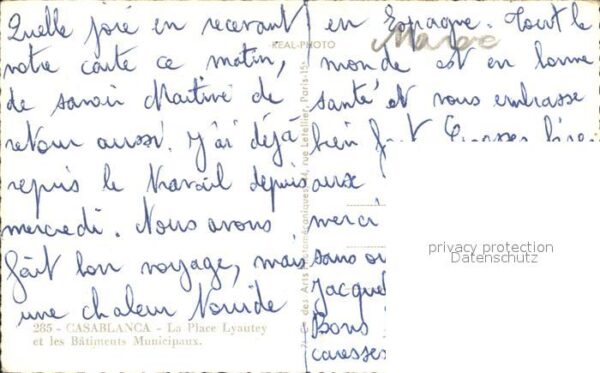 Quelle joie en recevant
votre carte ce matin,
de savoir Maitivé de
retour aussi. J'ai déjà
repris le travail depuis
mercredi. Nous avons
fait bon voyage, mais
une chaleur torride
en Espagne. Tout le
monde est en bonne
santé et vous embrasse
bien fort
aux
merci
sans
Jacque
Bons
caresses
REAL-PHOTO
Maroc
rue Letellier, Paris-15e
285 - CASABLANCA - La Place Lyautey
et les Bâtiments Municipaux.
privacy protection
Datenschutz